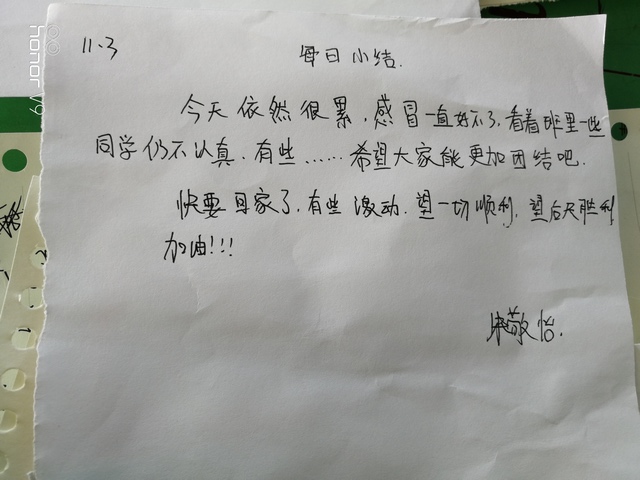 honor V9
11.3 每日小结.
今天依然很累,感冒一直好不了,看着班里一些
同学仍不认真.有些......希望大家能更加团结吧.
快要回家了,有些激动.望一切顺利,望后天胜利
加油!!!
敬怡.